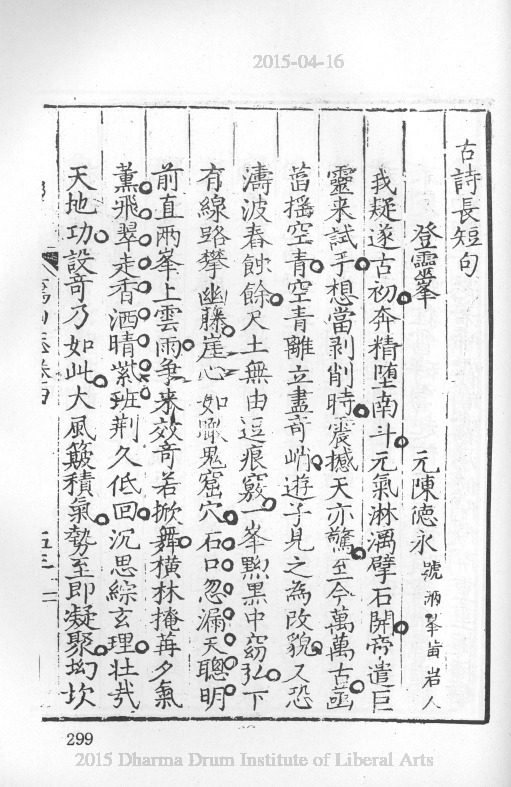 2015-04-16
古詩長短句
登靈峯 元陳德永號
我疑遂古初奔精堕南斗元氣淋漓擘石開帝遣巨
靈来試手想當剥削時震撼天亦驚至今萬萬古菡
萏揺空青空青離立盡奇峭遊子見之為改貌又恐
濤波舂蝕餘尺土無由逗痕竅一峯黑中窈弘下
有線路攀幽藤崖心如瞰鬼窟穴石口忽漏天聰明
前直兩峯上雲雨争来效奇若掀舞橫林掩苒夕氣
薰飛翠走香洒晴紫班荆久低回沉思綜玄理壮哉
天地功設奇乃如此大風簸積氣勢至即凝聚坳坎
299
2015 Dharma Drum Institute of Liberal Arts